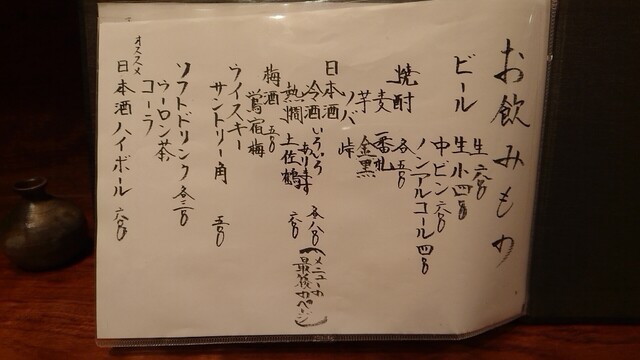 お飲みもの
ビール
生 六〇〇
生小 四〇〇
中ビン 六〇〇
ノンアルコール 四〇〇
焼酎 各五〇〇
麦 一番札
芋 金黒
ソバ 峠
日本酒
冷酒 いろいろあります 各八〇〇(メニューの最後のページ)
熱燗 土佐鶴 六〇〇
梅酒 五〇〇
鶯宿梅
ウイスキー
サントリー角 五〇〇
ソフトドリンク 各三〇〇
ウーロン茶
コーラ
オススメ
日本酒ハイボール 六〇〇